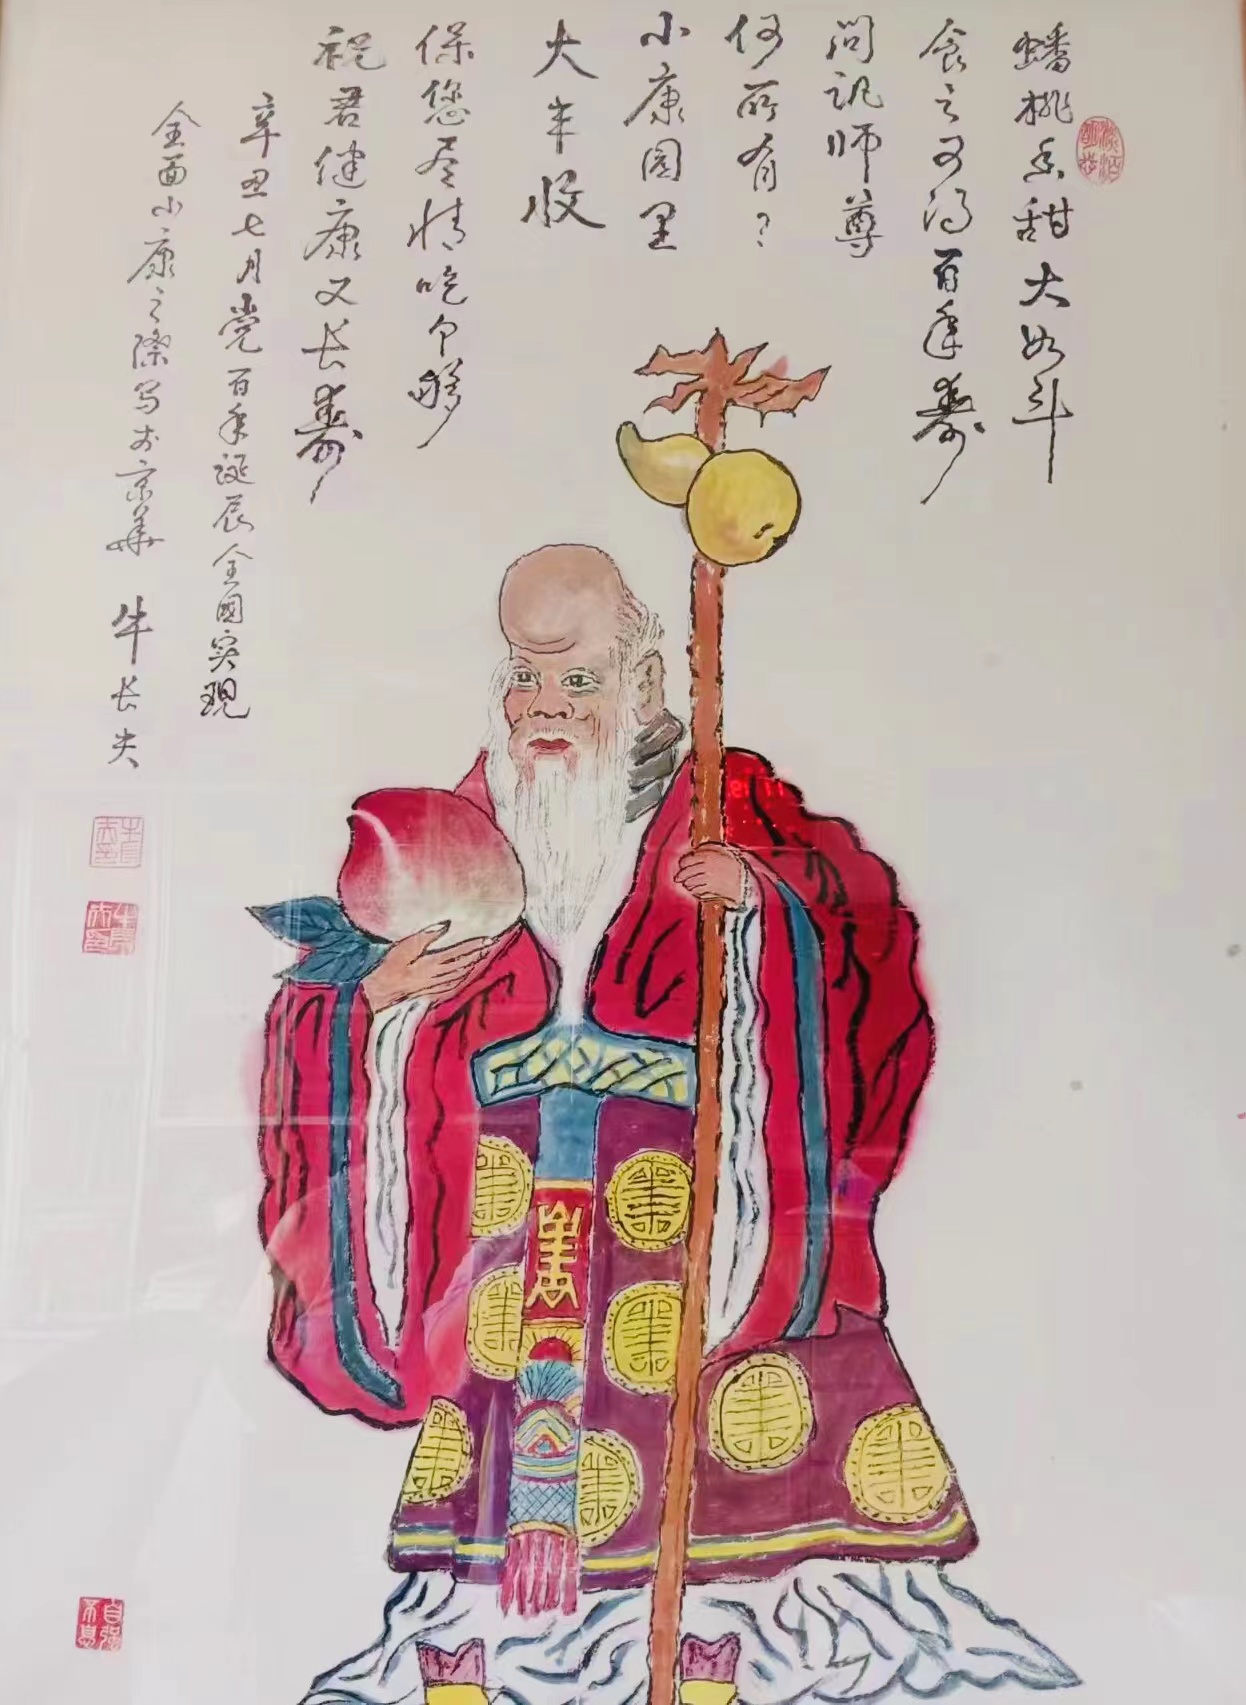 蟠桃香甜大如斗
食之可得百年寿
问讯师尊
何所有？
小康园里
大丰收
保您尽情吃个够
祝君健康又长寿
辛丑七月党百年诞辰全国实现
全面小康之际写于京华
牛长夫
自强不息